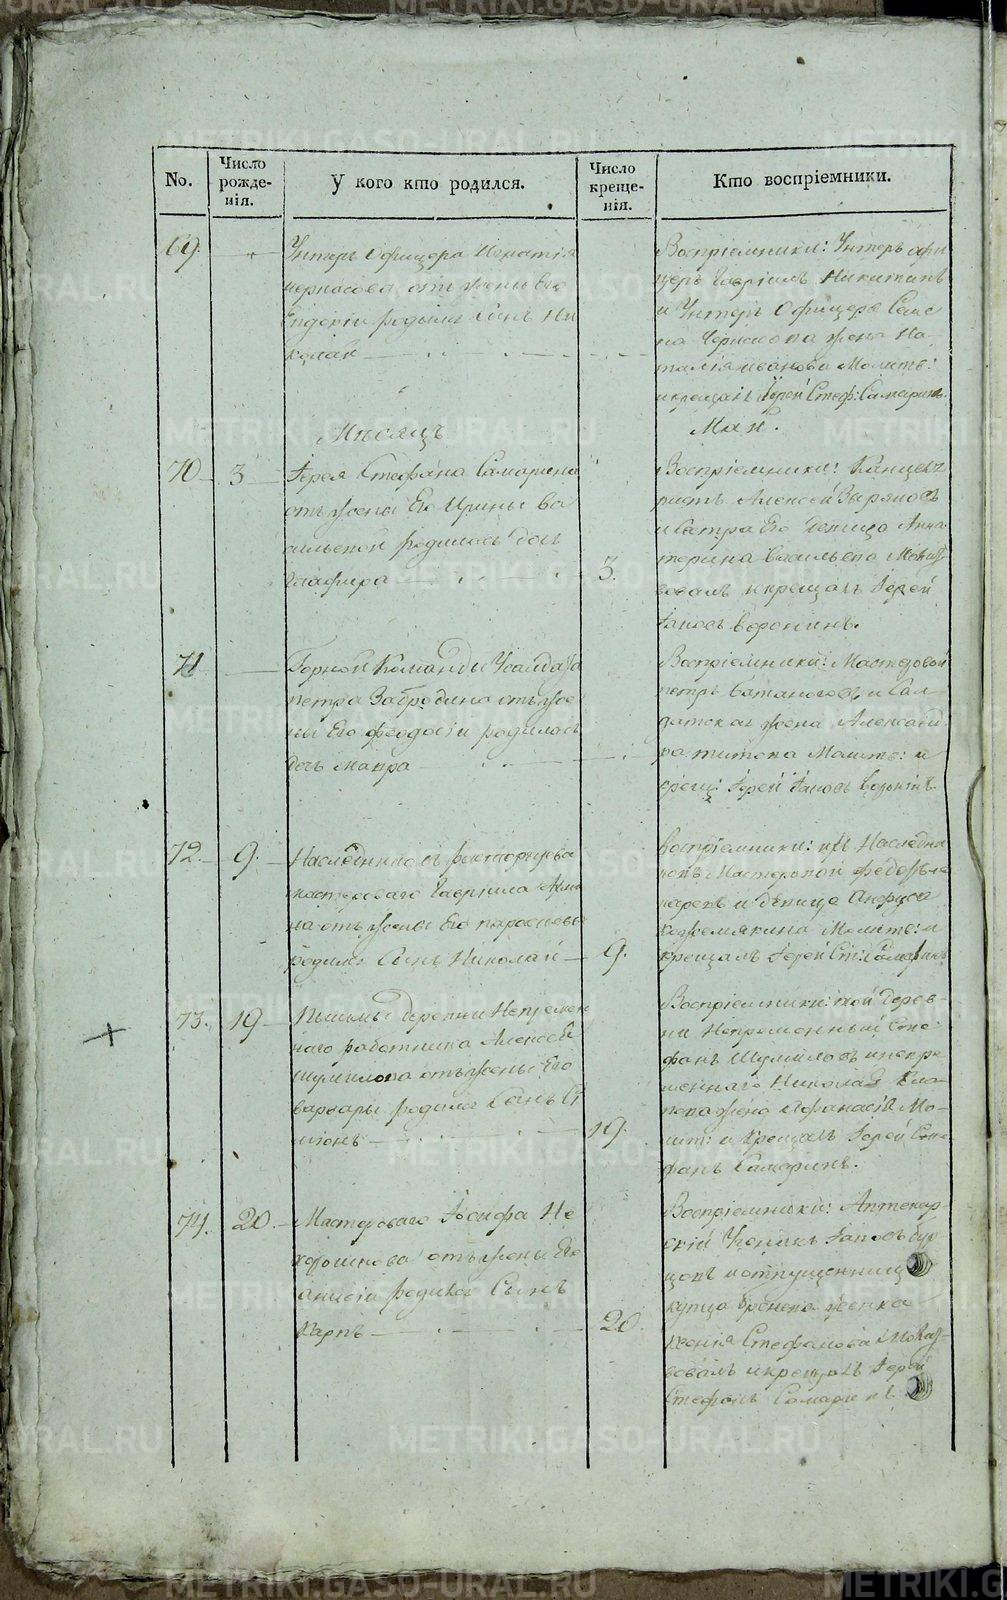 No.
Число рожде-нія.
У кого кто родился.
Число креще-нія.
Кто воспріемники.
69.
Унтеръ Офицера Игнатія
черкасова отъ жены Его
Евдокіи родился Сынъ Ни
колай
Воспріемники: Унтеръ офи
церъ Гавріилъ Никитинъ
и Унтеръ Офицера Семе
на жена На
талія иванова Молитв:
и крещалъ Іерей Стеф: Самаринъ.
Мѣсяцъ
Маи.
70
3
Іерея Стефана Самарина
отъ жены Его Ирины ва
сильевой родилась дочь
Глафира
3.
Воспріемники: Канцеля
ристъ Алексей Зыряновъ
и Сестра Его девица
терина васильева Молит
вовалъ и крещалъ Іерей
Іаковъ воронинъ.
71
Горной Команды Усалдата
петра Забродина отъ же
ны Его Феодосіи родилась
дочь
Воспріемники: Мастеровой
петръ и Сал
датская жена Александ
ра титова Молитв: и
крещ: Іерей Іаковъ воронинъ.
72.
9.
Наследниковъ расторгуева
мастероваго Гавріила
на отъ жены Его парасковьи
родился Сынъ Николай
9.
воспріемники: ихъ Наследни
ковъ Мастеровой Федоръ
и девица
кожемякина Молитв: и
крещалъ Іерей Ст: Самаринъ
73.
19
деревни Непремен
наго работника Алексея
шумилова отъ жены Его
варвары родился Сынъ С
міонъ
19.
Воспріемники: той дерев
ни Непременный Сте
фанъ Шумиловъ и непре
меннаго Николая
пова жена Афанасія Мо
лит: и крещалъ Іерей Сте
фанъ Самаринъ.
74.
20.
Мастероваго Іосифа Не
хорошкова отъ жены Его
анисіи родился Сынъ
Карпъ
20.
Воспріемники: Аптекар
скій Ученикъ Іаковъ Бур
цовъ и отпущенница
купца женка
ксенія Стефанова Молит
вовалъ и крещалъ Іерей
Стефанъ Самаринъ
METRIKI.GASO-URAL.RU